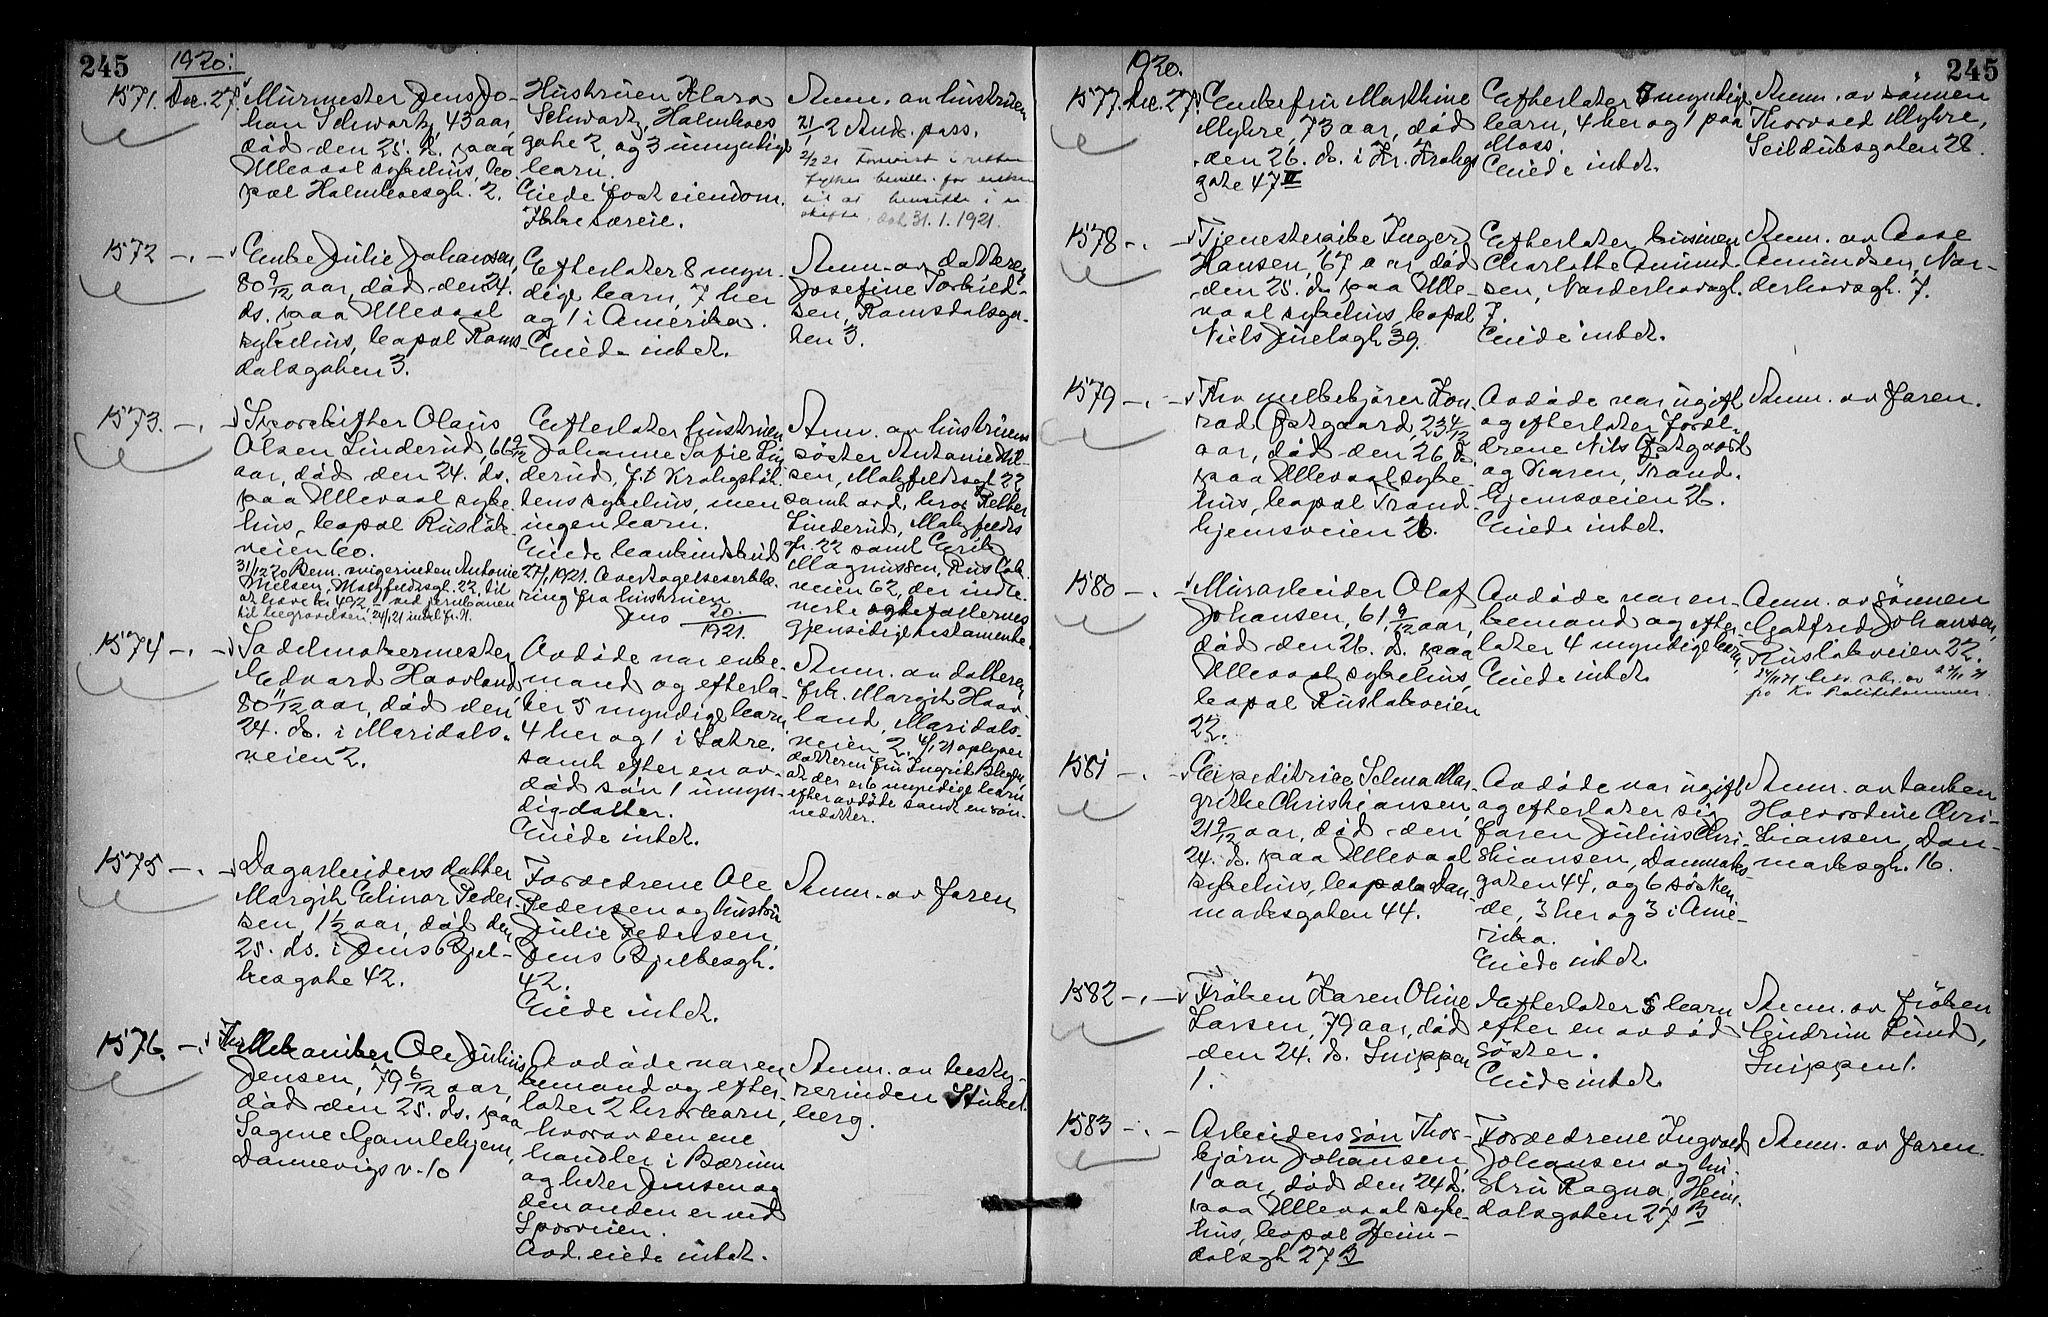 245
1920:
1571. Dec. 27. Murmester Jens Jo-
han Schwartz, 43 aar,
död den 25. ds. paa
Ullevaal sykehus, bo-
pæl Holmboesgt. 2.
Hustruen Klara
Schwartz, Holmboes
gate 2, og 3 umyndige
barn.
Eiede fast eiendom.
Ikke særeie.
Anm. av hustruen
21/2 Anb. pass.
for enken
til at hensitte i u-
skiftet dat. 31.1.1921.
1572 -.- Enke Julie Johansen,
80 9/12 aar, död den 24.
ds. paa Ullevaal
sykehus, bopæl Roms-
dalsgaten 3.
Efterlater 8 myn-
dige barn, 7 her
og 1 i Amerika.
Eiede intet.
Anm. av datteren
Josefine Torkild-
sen, Romsdalsga-
ten 3.
1573. -.- Sporskifter Olaus
Olsen Linderud, 66 9/12
aar, död den 24. ds.
paa Ullevaal syke-
hus, bopæl Rusløk-
veien 60.
31/12 20 Bem. svigerinden Antonie
Nielsen, Maltheesgt. 22, til
at hæve kr. 402,- ved jernbanen
til begravelsen.
Efterlater hustruen
Johanne Sofie Lin-
derud, f.t. Krohgstöt-
tens sykehus, men
ingen barn.
Eiede bankindskud
27/1 1921. Overtagelseserklæ-
ring fra hustruen
Jno 20./1921.
Anm. av hustruens
söster Antonie Niel-
sen,
samt avd. bror Petter
Linderud,
gt. 22 samt Erik
Magnussen, Rusløk-
veien 62, der indle-
verte ægtefællernes
gjensidige testamente.
1574 -.- Sadelmakermester
Edvard Haavland,
80 11/12 aar, död den
24. ds. i Maridals-
veien 2.
Avdöde var enke-
mand og efterla-
ter 5 myndige barn,
4 her og 1 i Sætre.
samt efter en av-
död sön 1 umyn-
dig datter.
Eiede intet.
Anm. av datteren
frk. Margit Haav-
land, Maridals-
veien 2. 4/1 21 oplyser
datteren fru Ingrid
at der er 6 myndige barn
efter avdöde samt en sön-
nedatter.
1575 -.- Dagarbeiders datter
Margit Elinor Peder-
sen, 1 1/2 aar, död den
25. ds. i Jens Bjel-
kesgate 42.
Forældrene Ole
Pedersen og hustru
Julie Pedersen,
Jens Bjelkesgt.
42.
Eiede intet.
Anm. av faren
1576. -.- Fhv. Mekaniker Ole Julius
Jensen, 79 6/12 aar,
död den 25. ds. paa
Sagene Gamlehjem,
Dannevigs v. 10
Avdöde var en
kemand og efter-
later 2 barn,
hvorav den ene
handler i Bærum
og heter Jensen og
den anden er ved
Sporveien.
Avd. eiede intet.
Anm. av besty-
rerinden Stabel-
berg.
1920.
245
1577. Dec. 27. Enkefru Mathine
Myhre, 73 aar, död
den 26. ds. i Kr. Krohgs
gate 47 II
Efterlater 5 myndige
barn, 4 her og 1 paa
Moss.
Eiede intet.
Anm. av sönnen
Thorvald Myhre,
Seilduksgaten 28.
1578 -.- Tjenestepike Inger
Hansen, 67 aar, död
den 25. ds. paa Ulle-
vaal sykehus, bopæl
Niels Juelsgt. 39.
Efterlater kusinen
Charlotte Amund-
sen, Norderhovsgt.
7.
Eiede intet.
Anm. av Aase
Amundsen, Nor-
derhovsgt. 7.
1579 -.- Fhv. melkekjörer Kon-
rad Östgaard, 23 4/12
aar, död den 26. ds.
paa Ullevaal syke-
hus, bopæl Trond-
hjemsveien 26.
Avdöde var ugift
og efterlater foræl-
drene Nils Östgaard
og Karen, Trond-
hjemsveien 26.
Eiede intet.
Anm. av faren.
1580 -.- Murarbeider Olaf
Johansen, 61 9/12 aar,
död den 26. ds. paa
Ullevaal sykehus,
bopæl Rusløkveien
22.
Avdöde var en-
kemand og efter-
later 4 myndige barn,
Eiede intet.
Anm. av sönnen
Gotfred Johansen,
Rusløkveien 22.
fra Kr. Politikammer.
1581 -.- Expeditrice Selma Mar-
grethe Christiansen,
21 9/12 aar, död den
24. ds. paa Ullevaal
sykehus, bopæl Dan-
marksgaten 44.
Avdöde var ugift
og efterlater sig
faren Julius Chri-
stiansen, Danmarks-
gaten 44, og 6 sösken-
de, 3 her og 3 i Ame-
rika.
Eiede intet.
Anm. av tanten
Halvordine Chri-
stiansen, Dan-
marksgt. 16.
1582 -.- Fröken Karen Oline
Larsen, 79 aar, död
den 24. ds. Snippen
1.
Efterlater 5 barn
efter en avdöd
söster.
Eiede intet.
Anm. av fröken
Gudrun Lund,
Snippen 1.
1583 -.- Arbeiders sön Thor-
björn Johansen,
1 aar, död den 24 ds.
paa Ullevaal syke-
hus, bopæl Heim-
dalsgt 27 B
Forældrene Ingvald
Johansen og hu-
stru Ragna, Heim-
dalsgaten 27 B
Anm. av faren.